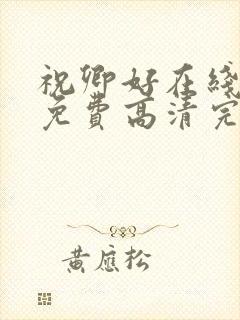 祝卿好在线
免费高清完
黄应松